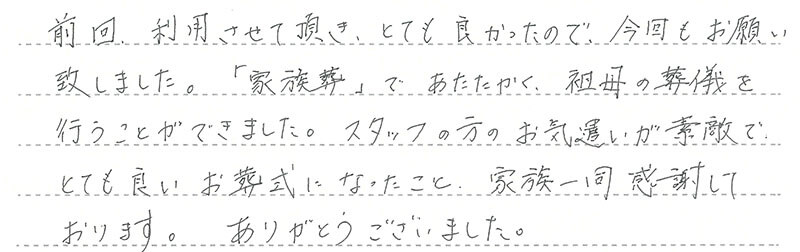 前回、利用させて頂き、とても良かったので、今回もお願い
致しました。「家族葬」で あたたかく、祖母の葬儀を
行うことができました。スタッフの方のお気遣いが素敵で、
とても良い お葬式になったこと、家族一同感謝して
おります。 ありがとうございました。